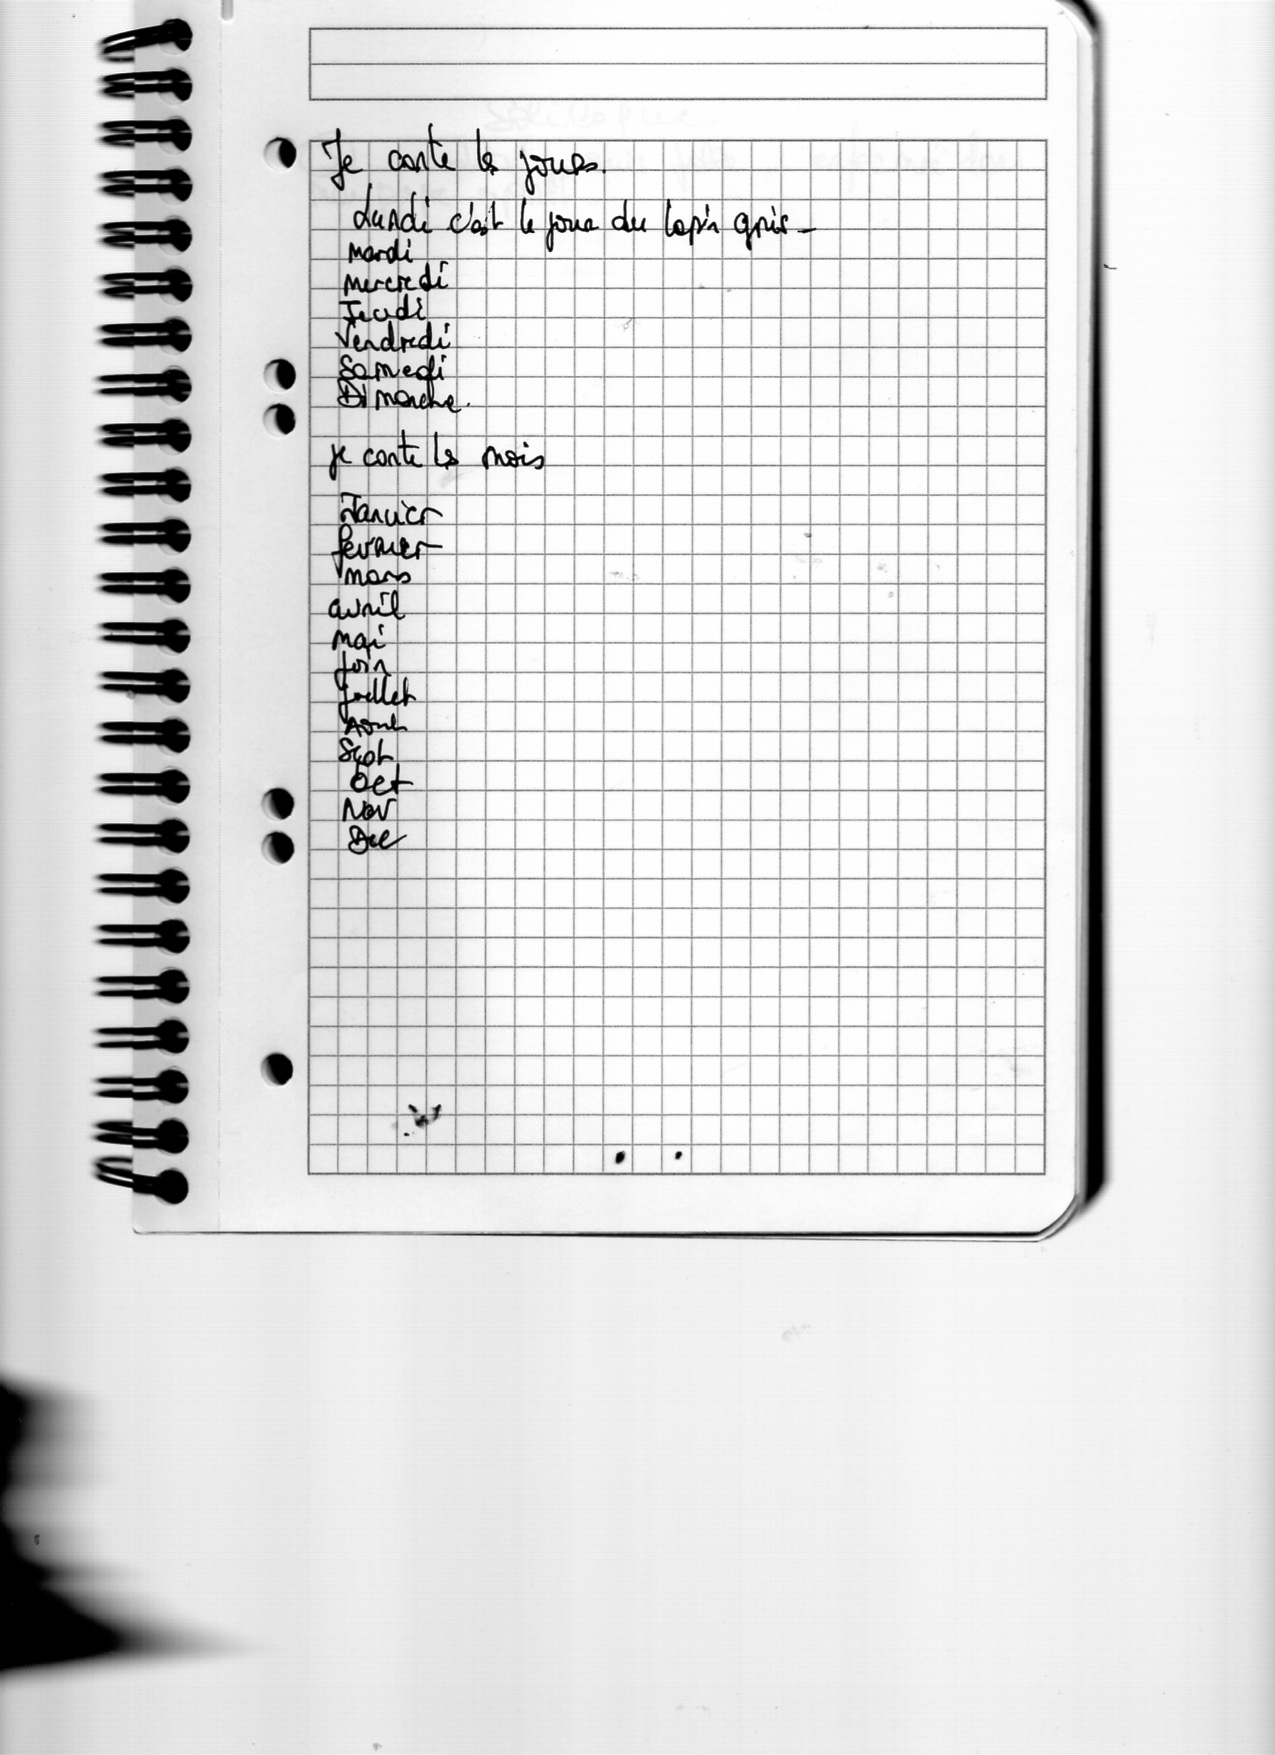 Je conte les jours.
Lundi c'est le jour du lapin gris -
mardi
mercredi
Jeudi
Vendredi
Samedi
Dimanche.
je conte les mois
Janvier
février
mars
avril
mai
Join
juillet
Aout
Sept
Oct
Nov
Dec